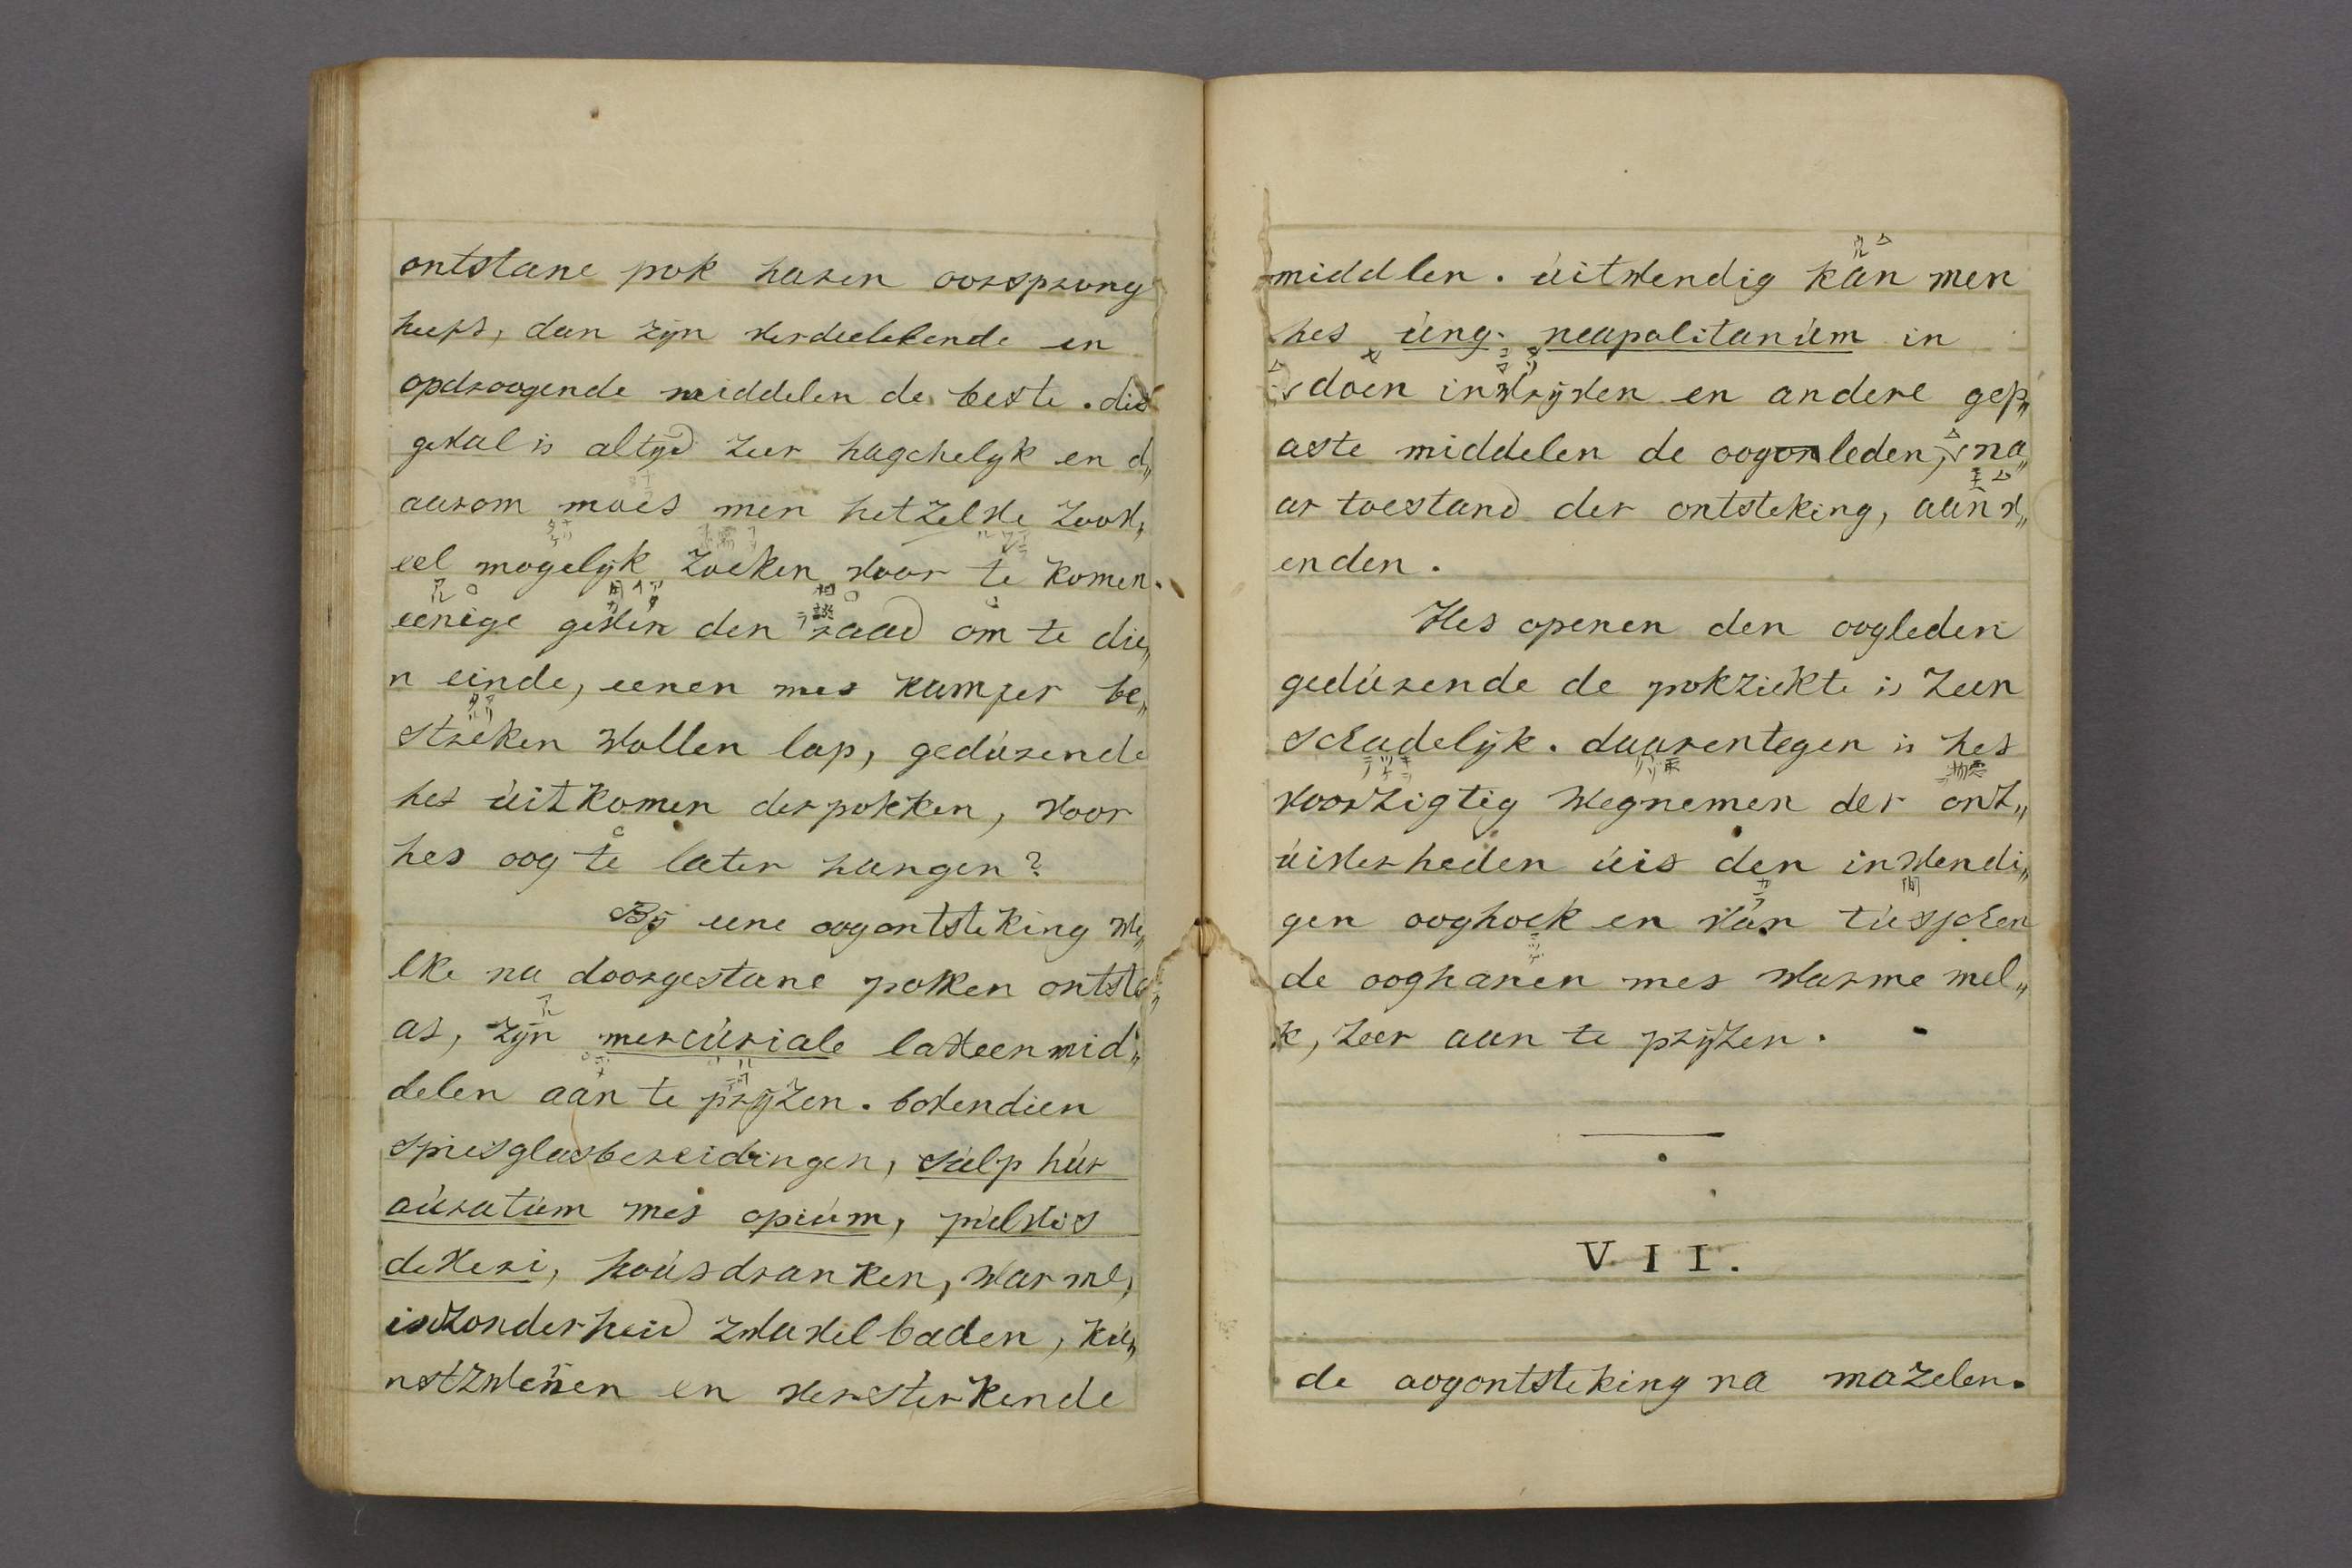 ontstane pok haren oorsprong
heeft, dan zijn verdeelekende en
opdroogende middelen de beste. dit
geval is altijd zeer hagchelyk en d„
aarom moet men hetzelve zoov„
eel mogelijk zoeken voor te komen.
eenige geven den raad om te die„
n einde, eenen met kamfer be„
streken wollen lap, gedúrende
het úitkomen der pokken, voor
het oog te laten hangen?
Bij eene oogontsteking we„
lke na doorgestane pokken ontsta„
at, zijn mercúriale laxeenmid„
delen aan te prijzen. bovendien
spiesglasbereidingen, súlphúr
aúratúm met opiúm, púlvis
doveri, hoúsdranken, warme,
inzonderheid zwavelbaden, kú„
nstzweren en versterkende
middlen. úitwendig kan men
het úng. neapolitanúm in
doen inwrijven en andere gep„
aste middelen de oogonleden, na„
ar toestand der ontsteking, aanw„
enden.
Het openen den oogleden
gedúrende de pokziekte is zeer
schadelijk. daarentegen is het
voorzigtig wegnemen der onz„
úiverheden úit den inwendi„
gen ooghoek en ván tússchen
de ooghanen met warme mel„
k, zeer aan te prijzen.
VII.
de oogontsteking na mazelen.